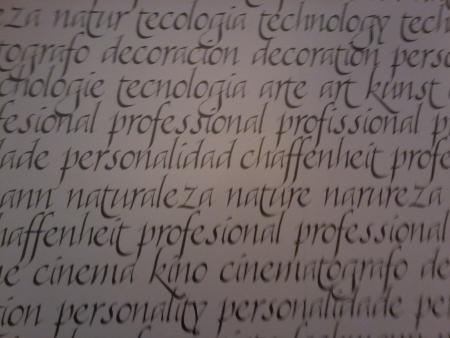 eza natur tecologia technology tech
tografo decoracion decoration perso
chnologie tecnologia arte art kunst
fesional professional profissional p
dade personalidad chaffenheit profe
mann naturaleza nature narureza
haffenheit profesional professional
ne cinema kino cinematografo de
cion personality personalidade per